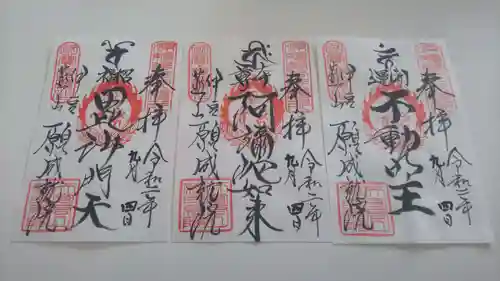 奉拝
令和二年
九月四日
不動明王
伊豆
韮山
願成就院
奉拝
令和二年
九月四日
阿彌陀如来
伊豆
韮山
願成就院
奉拝
令和二年
九月四日
毘沙門天
伊豆
韮山
願成就院